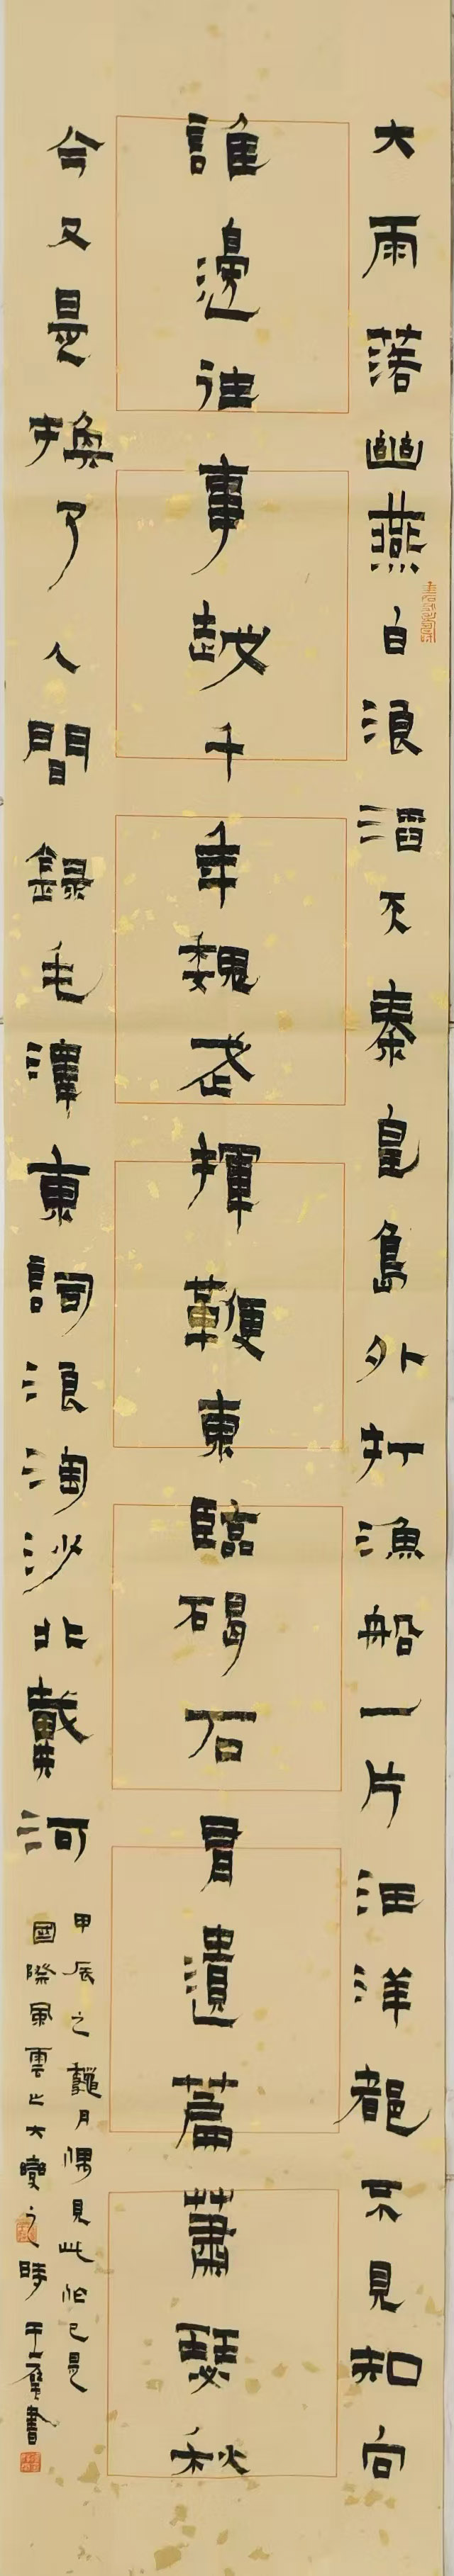 大雨落幽燕白浪滔天秦皇島外打漁船一片汪洋都不見知向
誰邊往事越千年魏武揮鞭東臨碣石有遺篇蕭瑟秋
今又是換了人間錄毛澤東詞浪淘沙北戴河
甲辰之龝月偶見此作已是
國際風雲大變之時 書